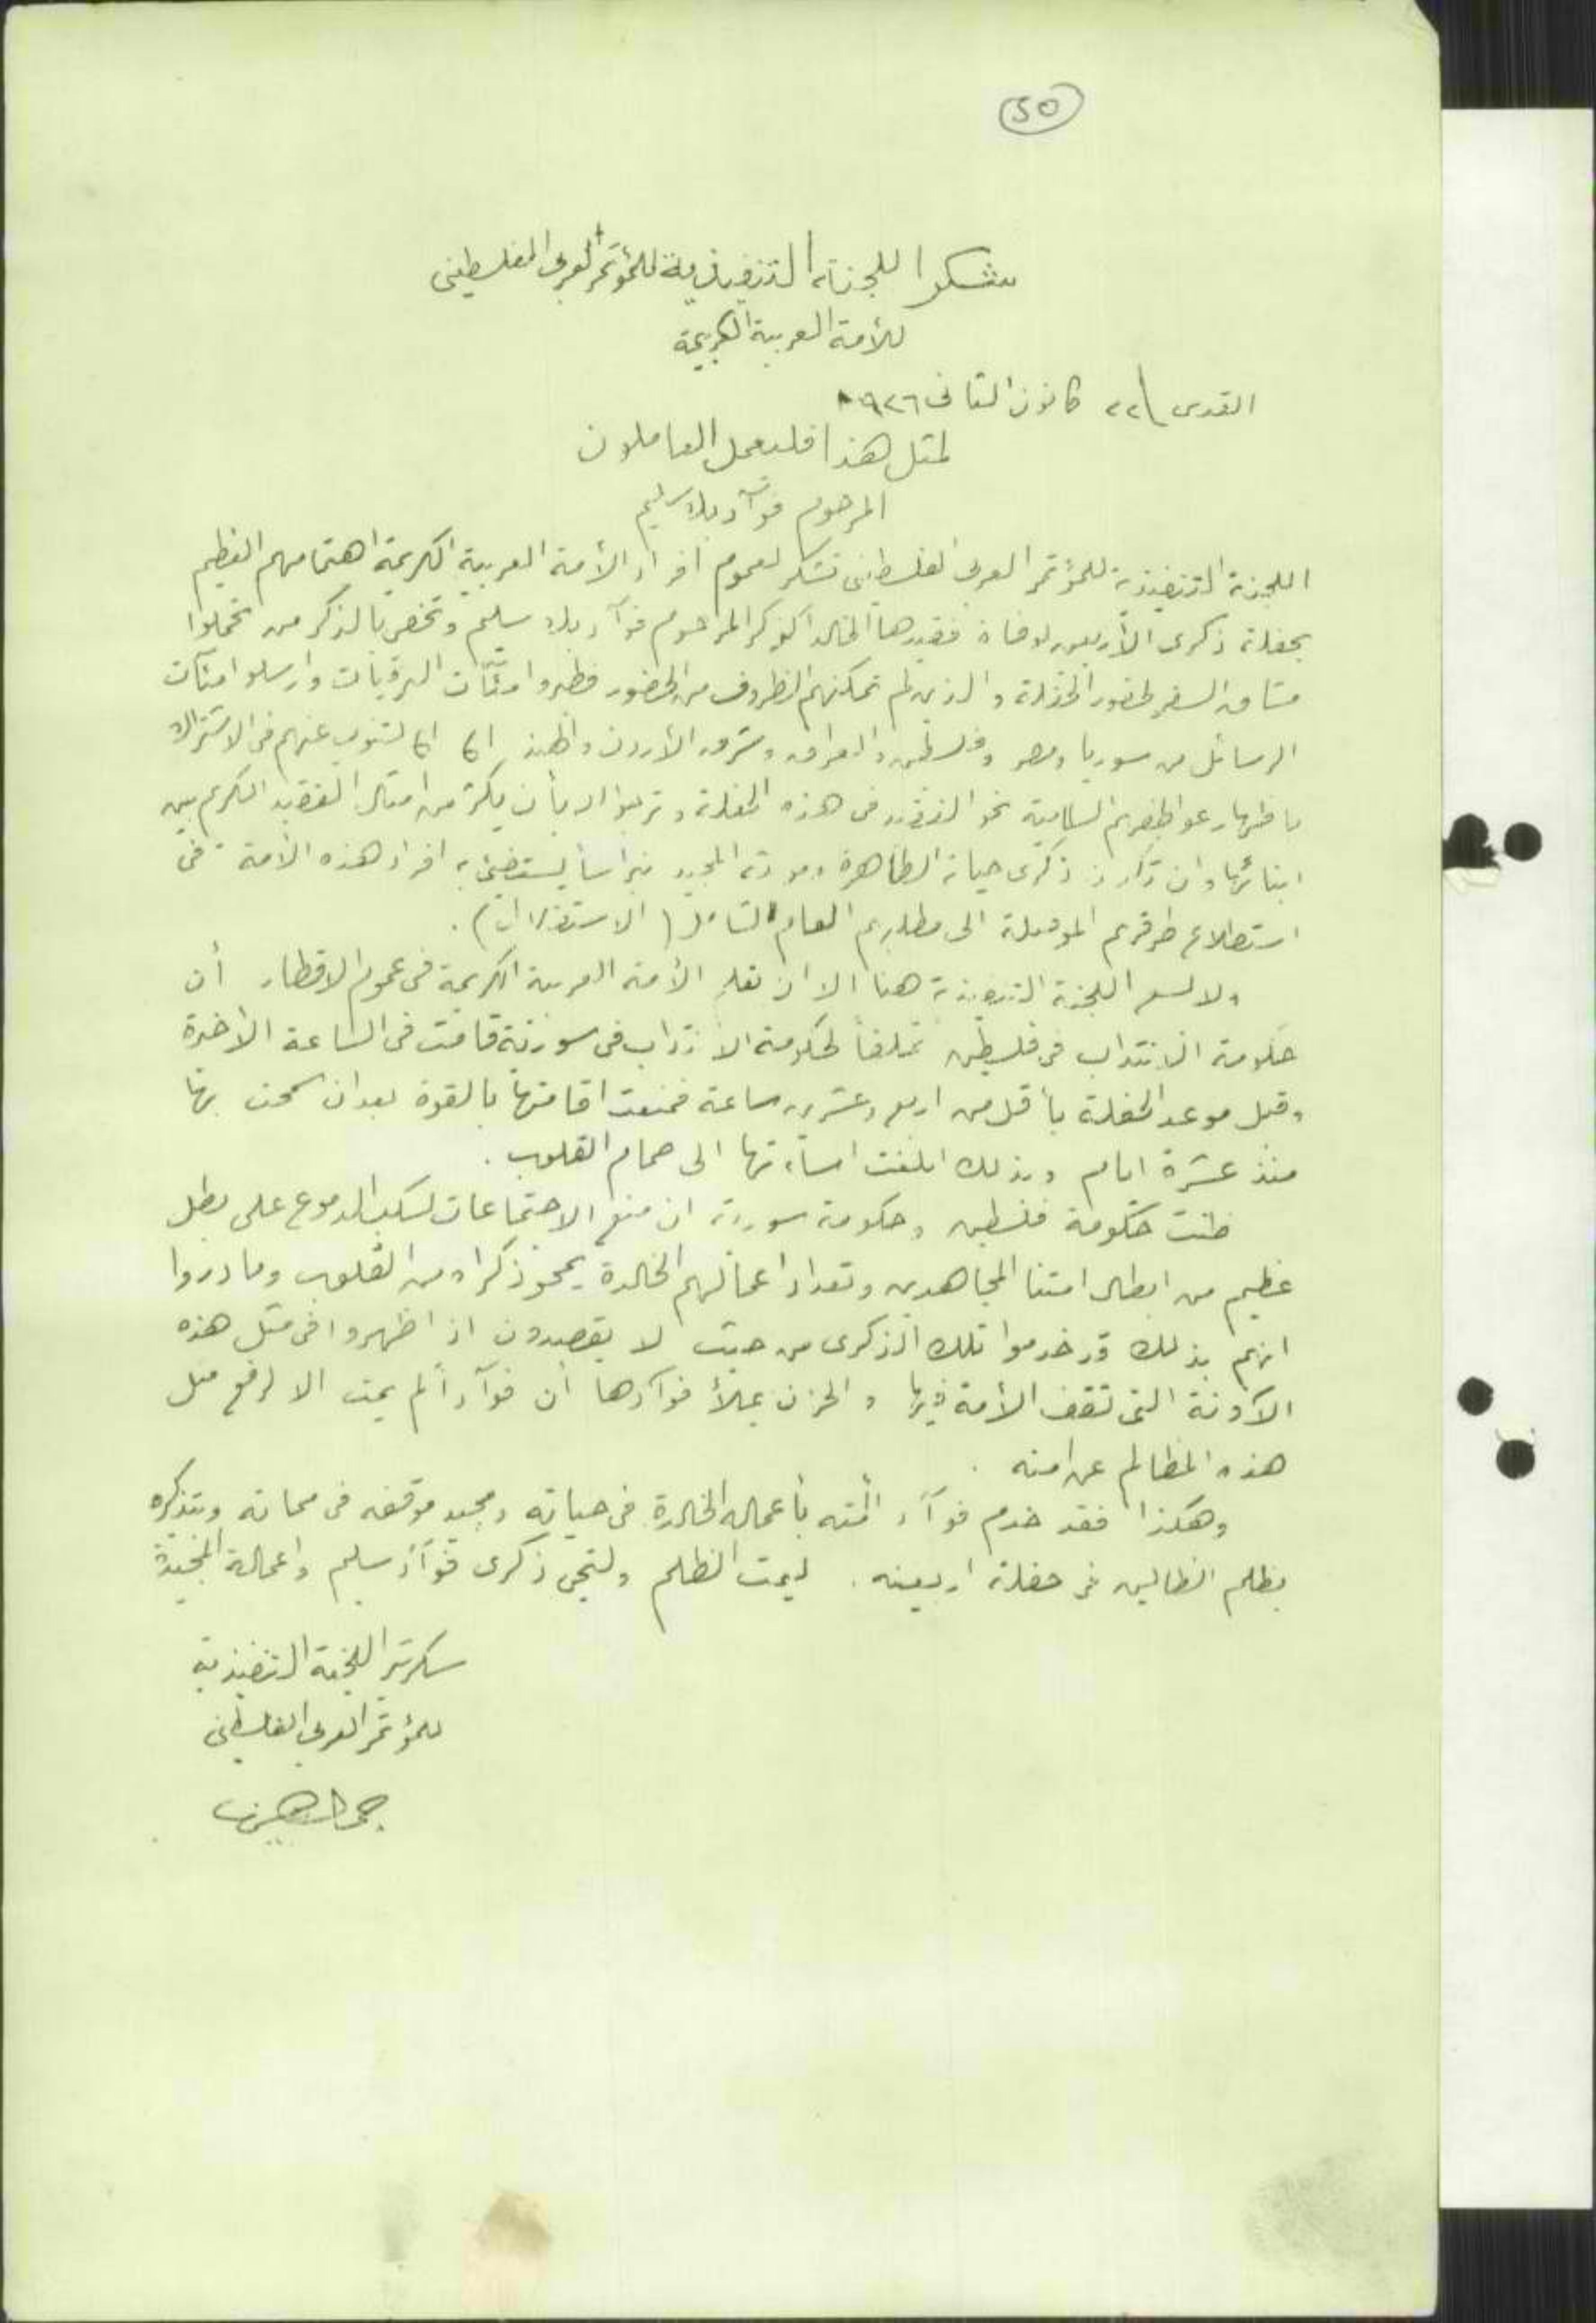 50
شكر اللجنة التنفيذية للمؤتمر العربي الفلسطيني
للأمة العربية الكريمة
القدس ٢٢ كانون الثاني ٩٢٦
لمثل هذا فليعمل العاملون
المرحوم فوآد بك سليم
اللجنة التنفيذية للمؤتمر العربي الفلسطيني تشكر لعموم افراد الأمة العربية الكريمة اهتمامهم العظيم
بحفلة ذكرى الأربعين لوفاة فقيدها الخالد الذكر المرحوم فوآد بك سليم وتخص بالذكر من تحملوا
مشاق السفر لحضور الحفلة والذين لم تمكنهم الظروف من الحضور فطيروا مئآت البرقيات وارسلوا مئآت
الرسائل من سوريا ومصر وفلسطين والعراق وشرق الأردن والهند لتنوب عنهم في الاشتراك
باظهار عواطفهم السامية نحو الفقيد في هذه الحفلة وترجوا الله بأن يكثر من امثال الفقيد الكريم بين
ابنائها وان تكون ذكرى حياته الطاهرة وموته المجيد نبراساً يستضيئ به افراد هذه الأمة في
استطلاع طرقهم الموصلة الى مطلبهم العام الشامل (الاستقلال).
ولا يسع اللجنة التنفيذية هنا الا ان تعلم الأمة العربية الكريمة في عموم الاقطار أن
حكومة الانتداب في فلسطين تملقاً لحكومة الانتداب في سورية قامت في الساعة الأخيرة
وقبل موعد الحفلة بأقل من اربع وعشرين ساعة فمنعت اقامتها بالقوة بعد ان سمحت بها
منذ عشرة ايام وبذلك ابلغت اساءتها الى صمام القلوب.
ظنت حكومة فلسطين وحكومة سورية ان منع الاجتماعات لسكب الدموع على بطل
عظيم من ابطال امتنا المجاهدين وتعداد اعمالهم الخالدة يمحو ذكراه من القلوب وما دروا
انهم بذلك قد خدموا تلك الذكرى من حيث لا يقصدون اذ اظهروا في مثل هذه
الآونة التي تقف الأمة فيها والحزن يملأ فوآدها أن فوآداً لم يمت الا لرفع مثل
هذه المظالم عن امته.
وهكذا فقد خدم فوآد امته بأعماله الخالدة في حياته ومجيد موقفه في مماته وبتذكيره
بظلم الظالمين في حفلة اربعينه. ليمت الظلم ولتحي ذكرى فوآد سليم واعماله المجيدة
سكرتير اللجنة التنفيذية
للمؤتمر العربي الفلسطيني
جمال الحسيني